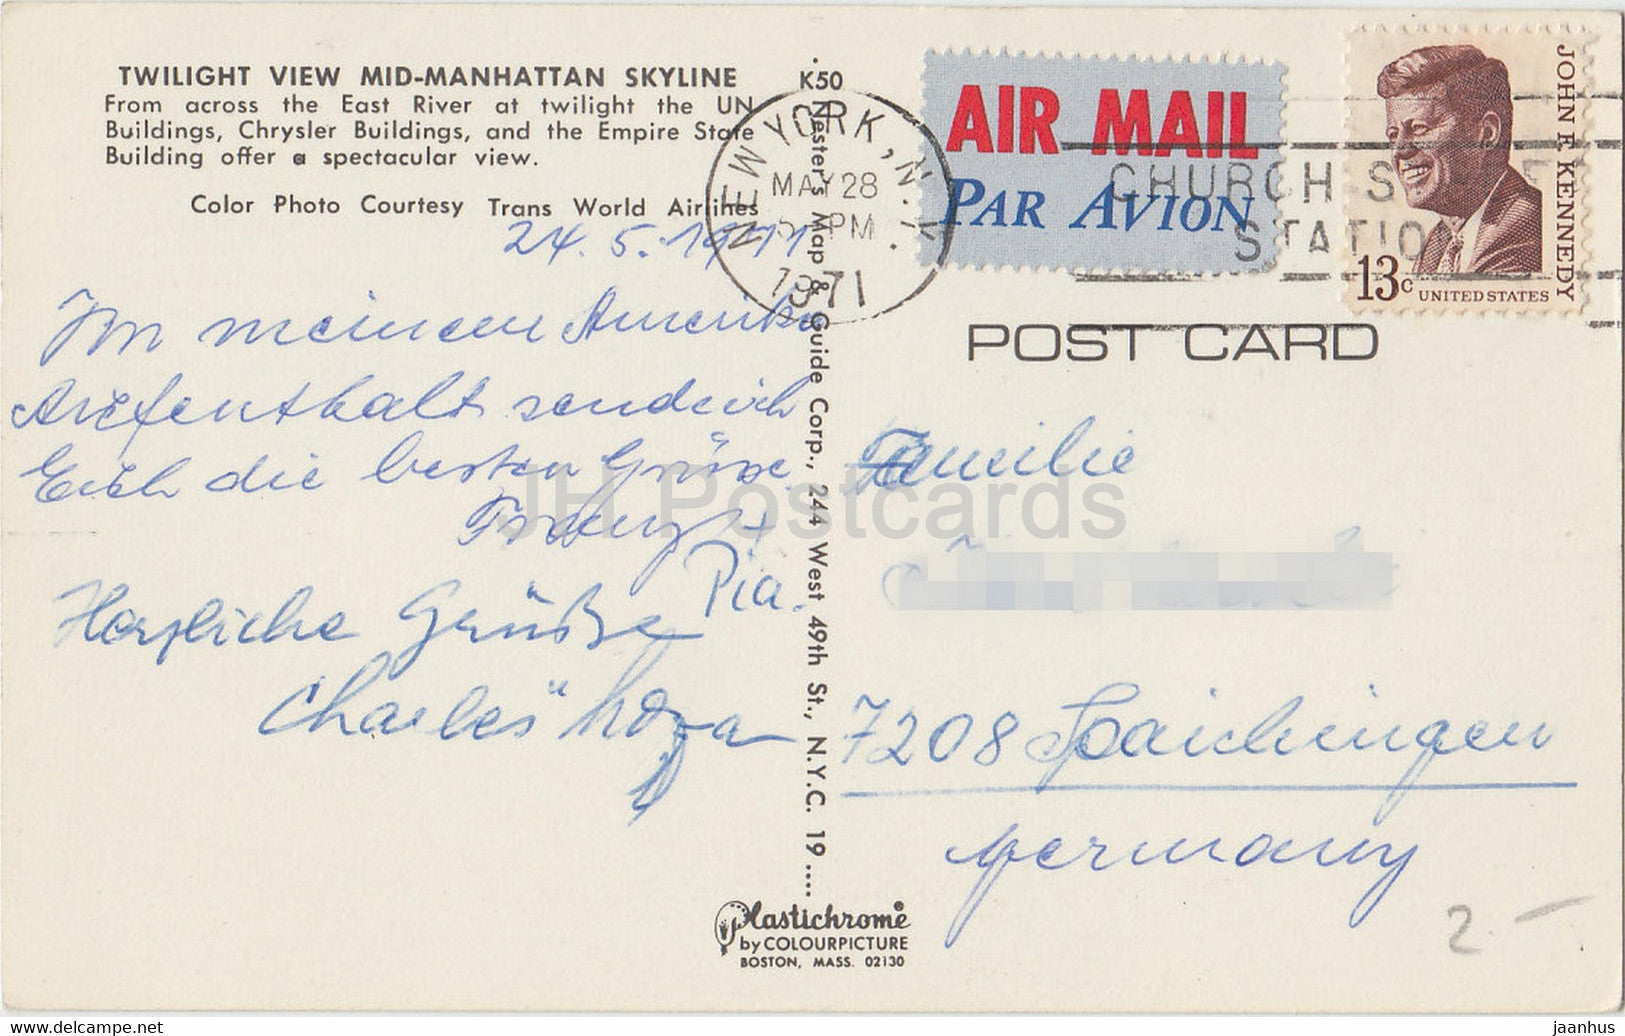 TWILIGHT VIEW MID-MANHATTAN SKYLINE
From across the East River at twilight the UN
Buildings, Chrysler Buildings, and the Empire State
Building offer a spectacular view.
Color Photo Courtesy Trans World Airlines
K50
Nester's Map & Guide Corp., 244 West 49th St., N.Y.C. 19....
NEW YORK, N.Y.
MAY 28
PM
1971
AIR MAIL
PAR AVION
CHURCH ST
STATIO
JOHN F. KENNEDY
13c UNITED STATES
POST CARD
24.5.1971
Von meinem Amerika
Aufenthalt sende ich
Euch die besten Grüsse
Franz +
Pia.
Herzliche Grüße
Charles
Familie
7208 Spaichingen
Germany
2.-
Plastichrome
by COLOURPICTURE
BOSTON, MASS. 02130
JH Postcards
www.delcampe.net
jaanhus